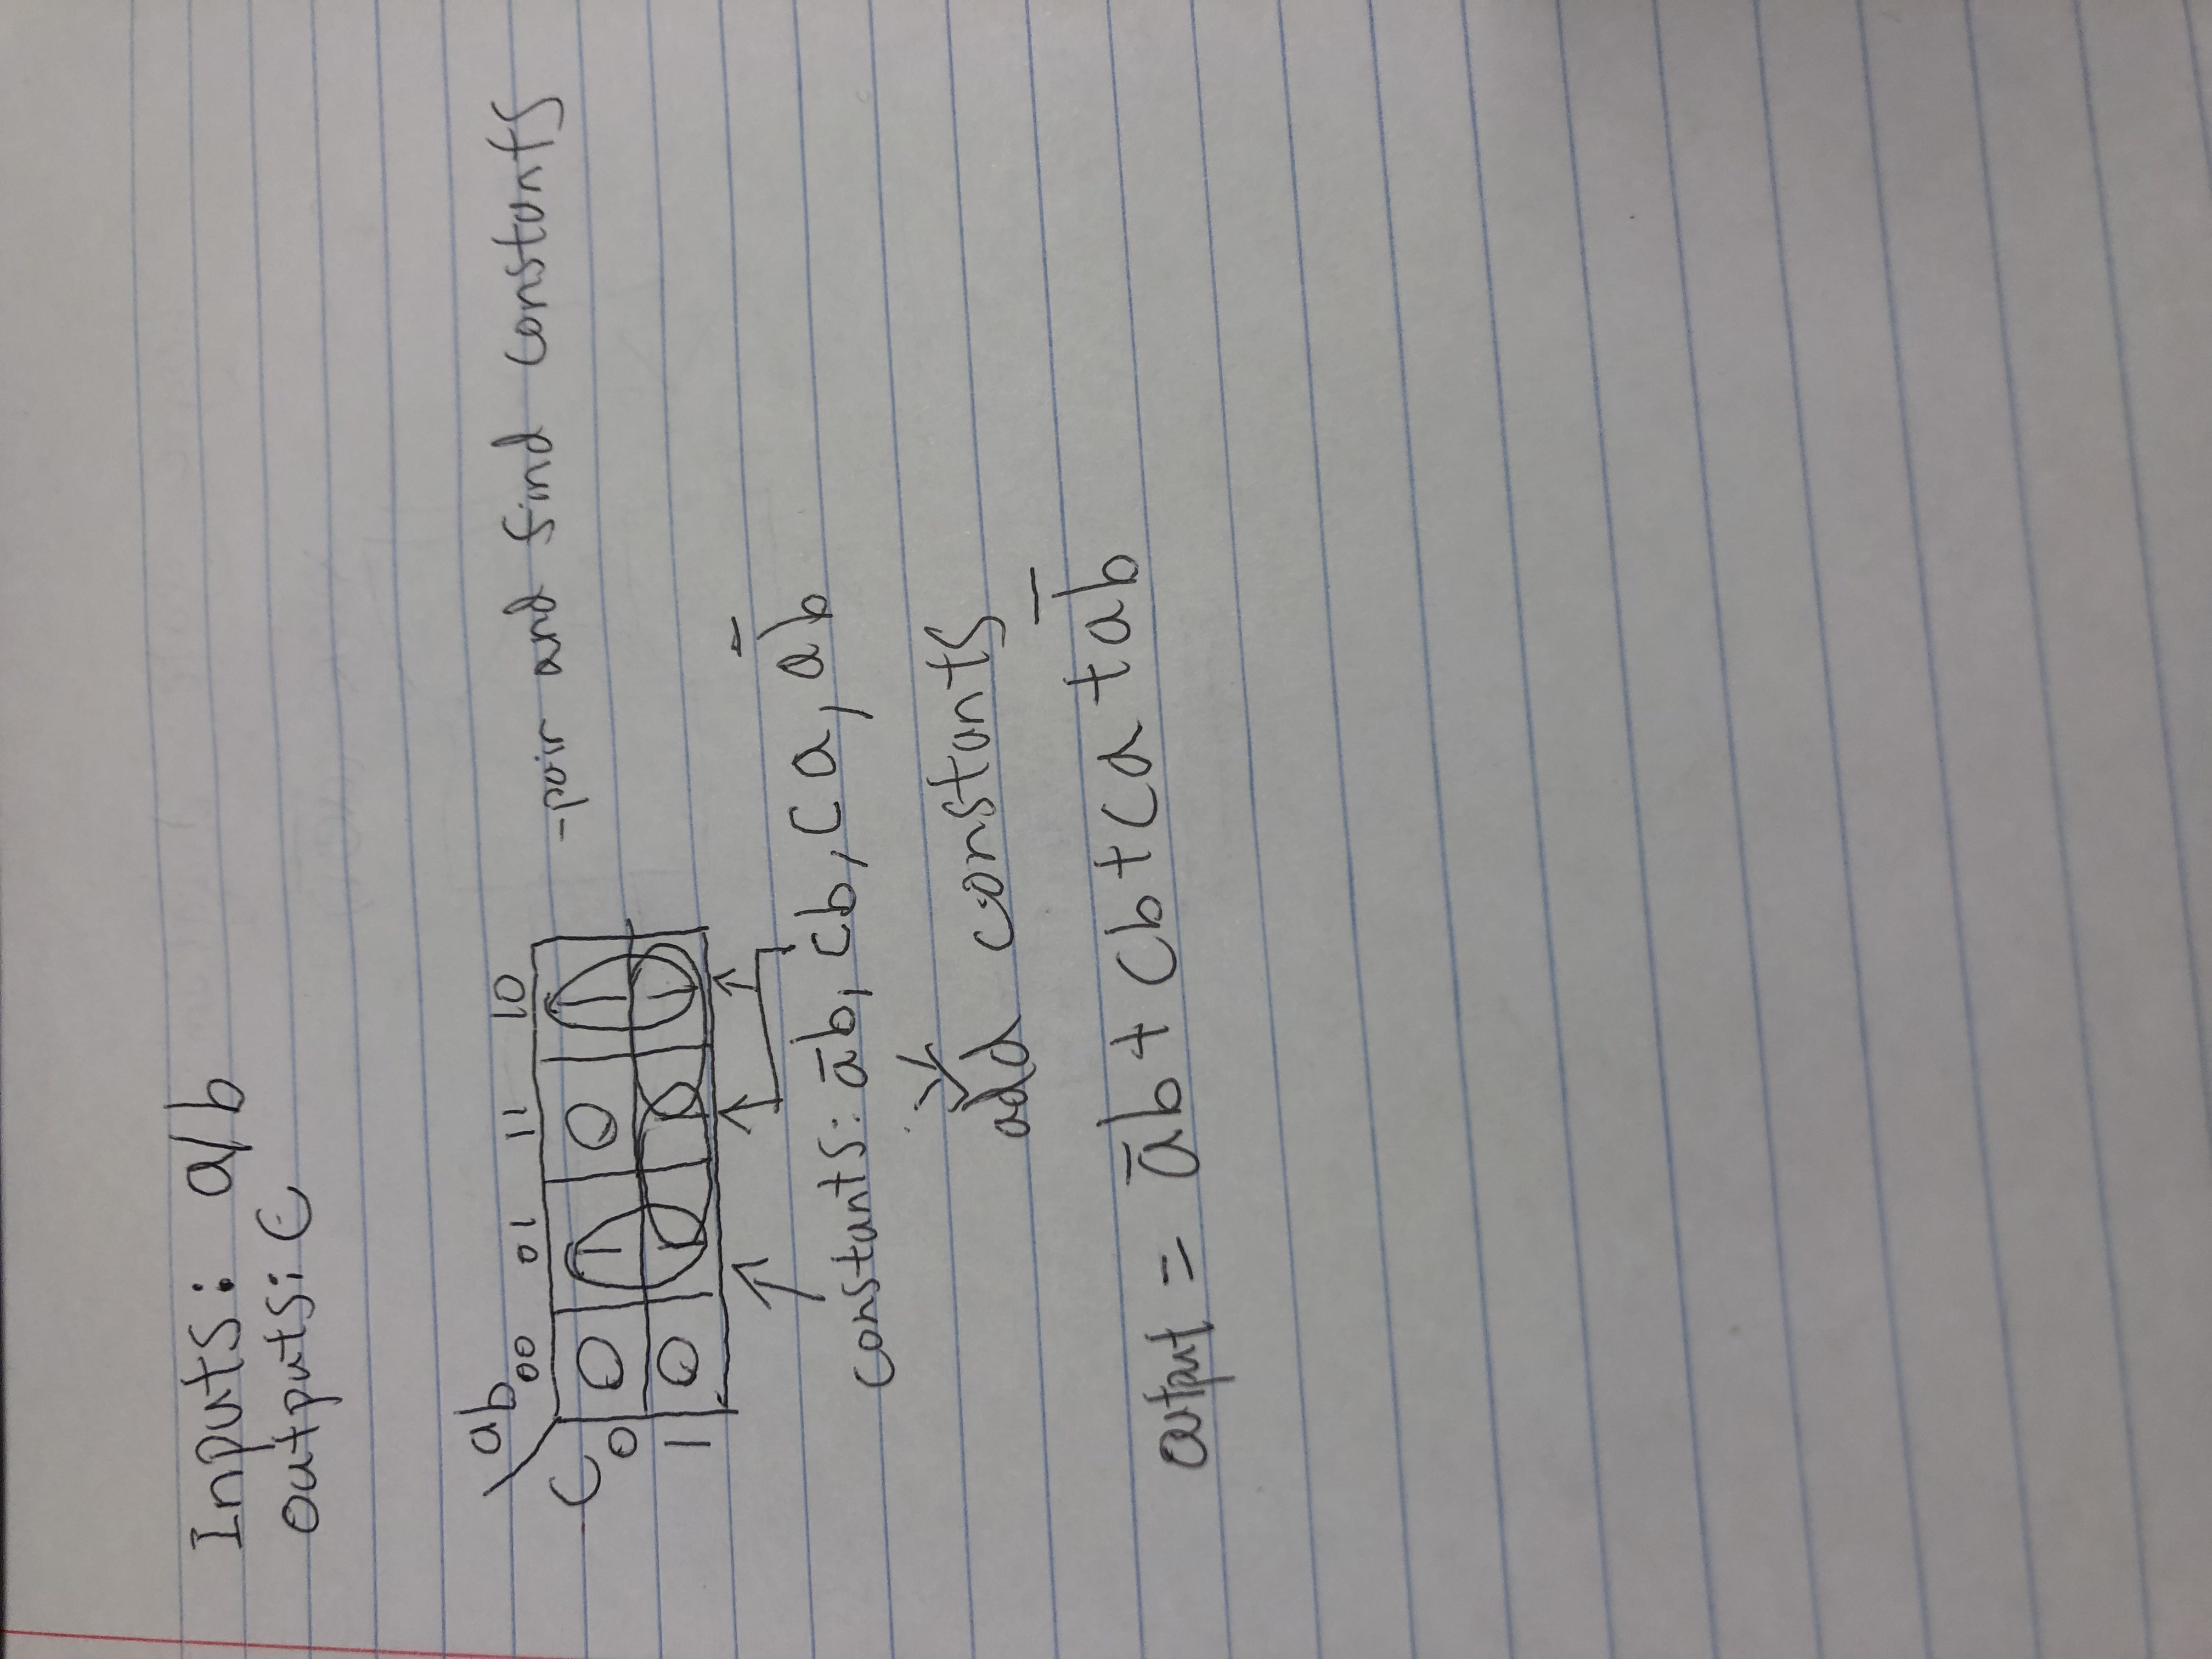 Inputs: a/b
Outputs: C
ab
00 01 11 10
C
0 0 1 0 1
1 0 1 1 1
-pair and find constants
constants: āb, cb, ca, ab̄
add constants
output = āb + cb + ca + ab̄